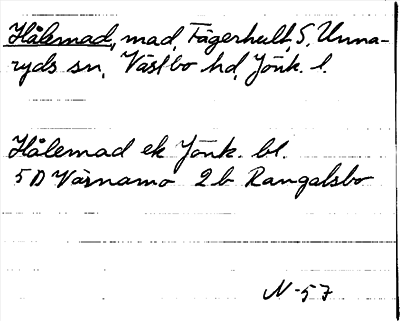 Hålemad, mad, Fägerhult, S. Unna-
ryds sn, Västbo hd, Jönk. l.
Hålemad ek Jönk. bl.
5D Värnamo 2b Rangelsbo
N-57